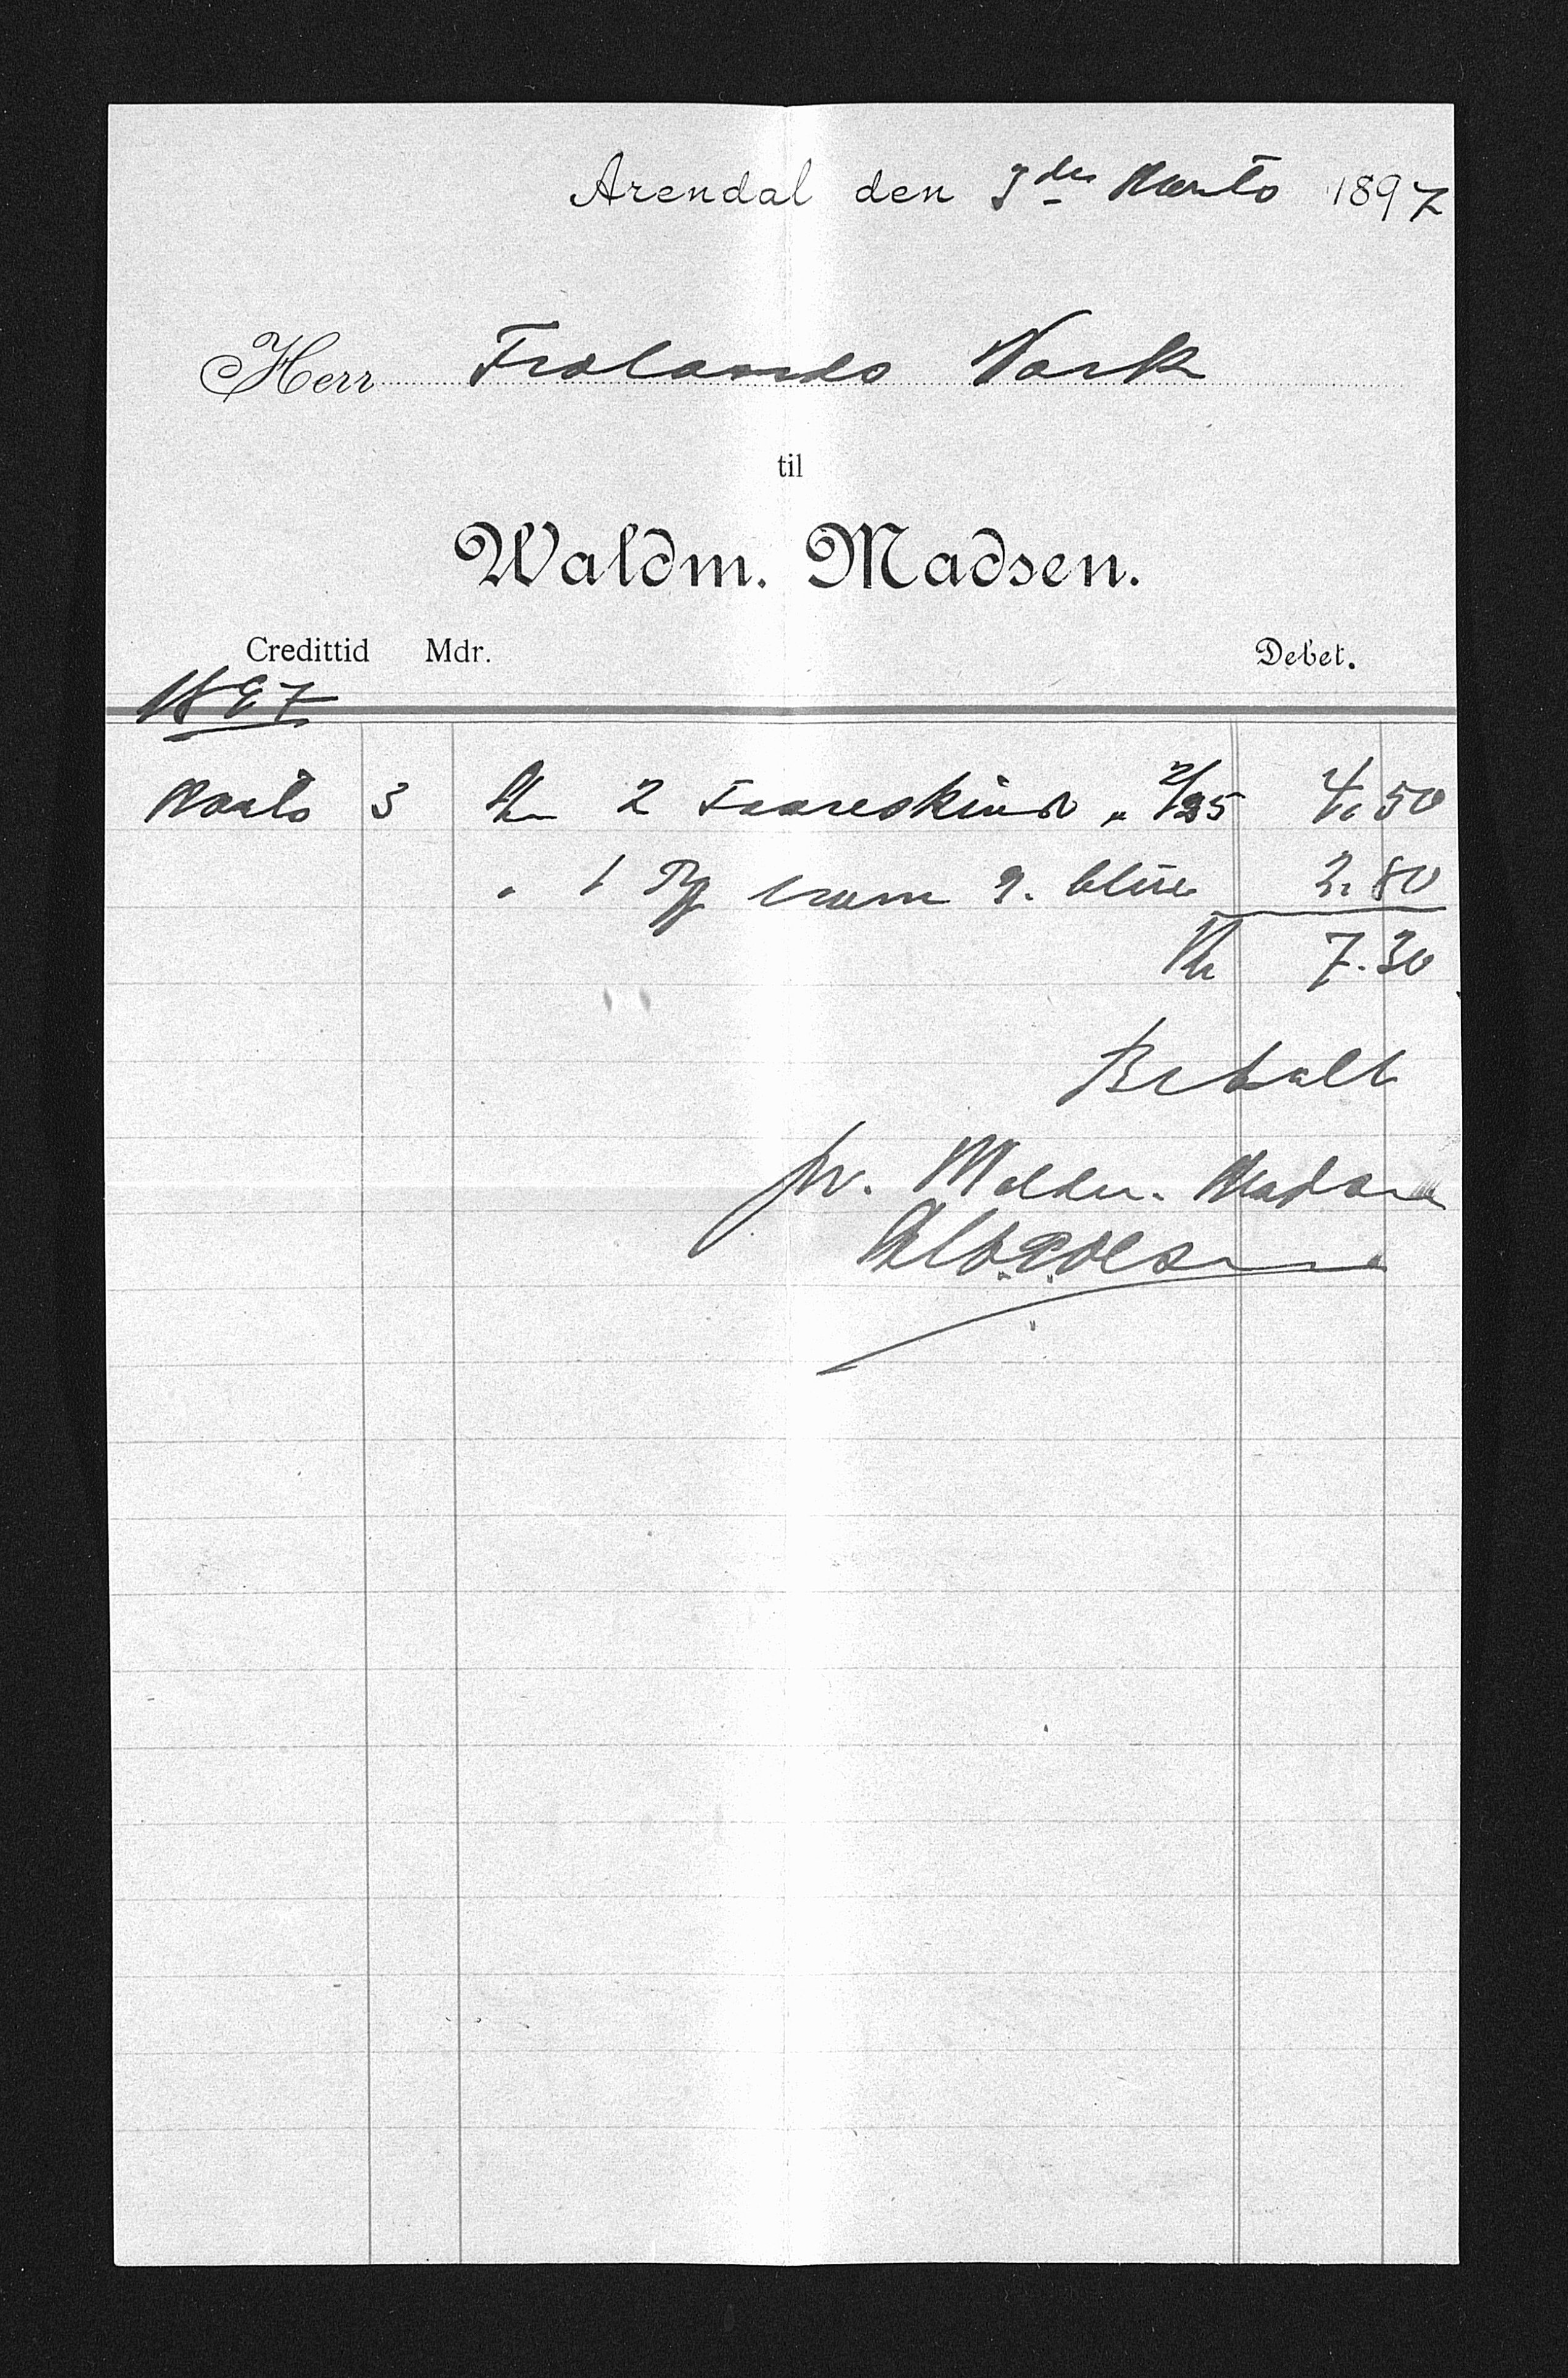 Arendal den 3die Marts 1897
Herr Frolands Værk
til
Waldm. Madsen.
Credittid Mdr. Debet.
1897
Marts 3 An 2 Faareskind " 2/25 4. 50
" 1 2. 80
Kr 7. 30
Betalt
pr. Waldm. Madsen